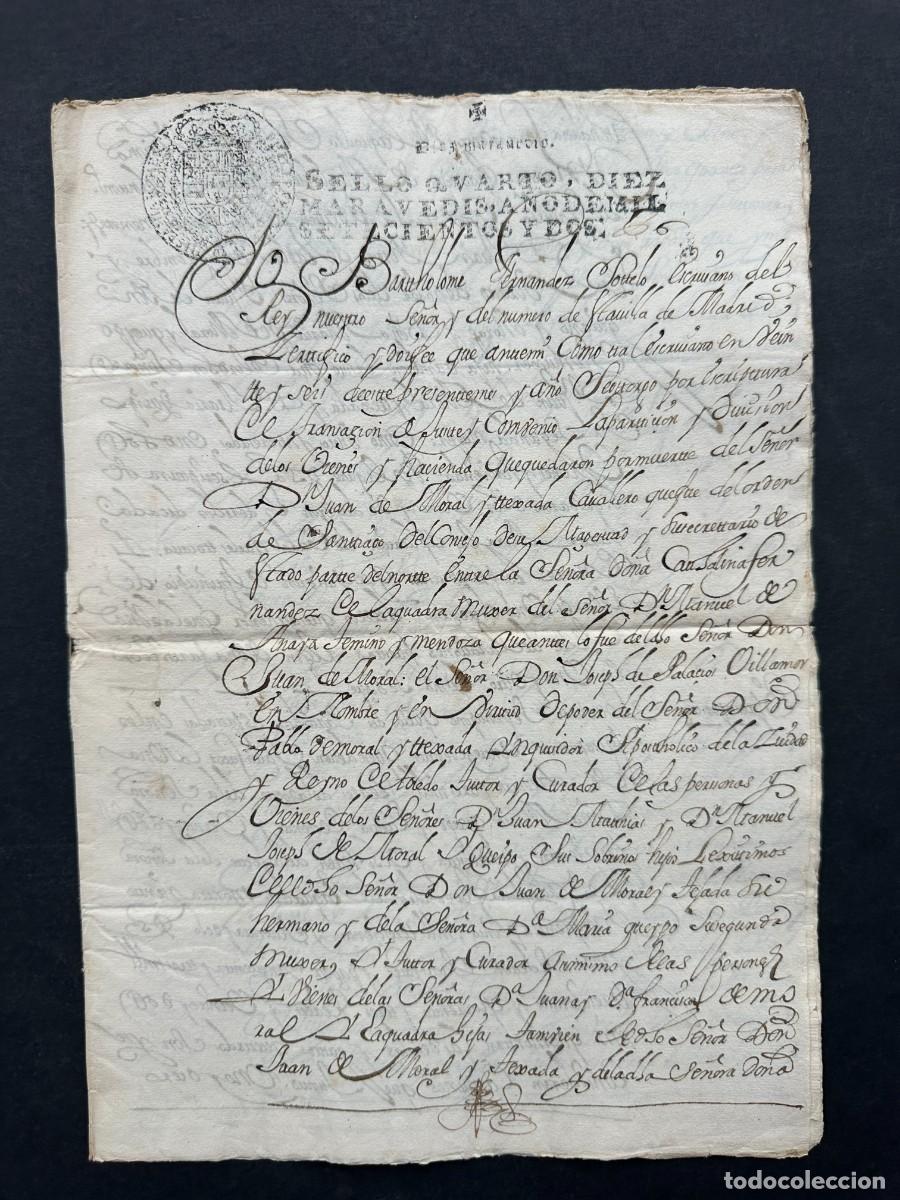 Diez maravedis.
SELLO QVARTO, DIEZ
MARAVEDIS, AÑO DE MIL
SETECIENTOS Y DOS.
Yo Bartholome Fernandez Sotelo escriuano del
Rey nuestro Señor y del numero de stauilla de Madrid
Zertifico y doi fee que antemi como tal escriuano en Vein
tte y seis deeste presente mes y año Se otorgo por escriptura
de transazion Ajuste y Convenio La particion y diuision
delos Vienes y hacienda que quedaron por muerte del Señor
Dn Juan de Moral y ttexada Cauallero que fue del orden
de Santtiago del Consejo de su Magestad y su secrettario de
stado partte del nortte entre la Señora Doña Cathalina fer
nandez de la quadra muxer del Señor Dn Manuel de
Anaya y mendoza que antes lo fue del dho Señor Don
Juan de Moral: el Señor Don Joseph de Palacios Villamor
En Nombre y en Virtud de poder del Señor Don
Pablo de moral y ttexada Ynquisidor Apostholico de la Ziudad
y Reyno de toledo tuttor y Curador de las personas y
Vienes delos Señores Dn Juan Matthias y Dn Manuel
Joseph de Moral y Queipo sus sobrinos hijos Lexitimos
del dho Señor Don Juan de Moral y tejada su
hermano y dela Señora Da Maria queypo su segunda
muxer, y tuttor y Curador asimismo de las personas
y Vienes delas Señoras Da Juana y Da francisca de mo
ral y Laquadra hijas tamvien del dho Señor Don
Juan de Moral y texada y dela dha Señora Doña
todocoleccion